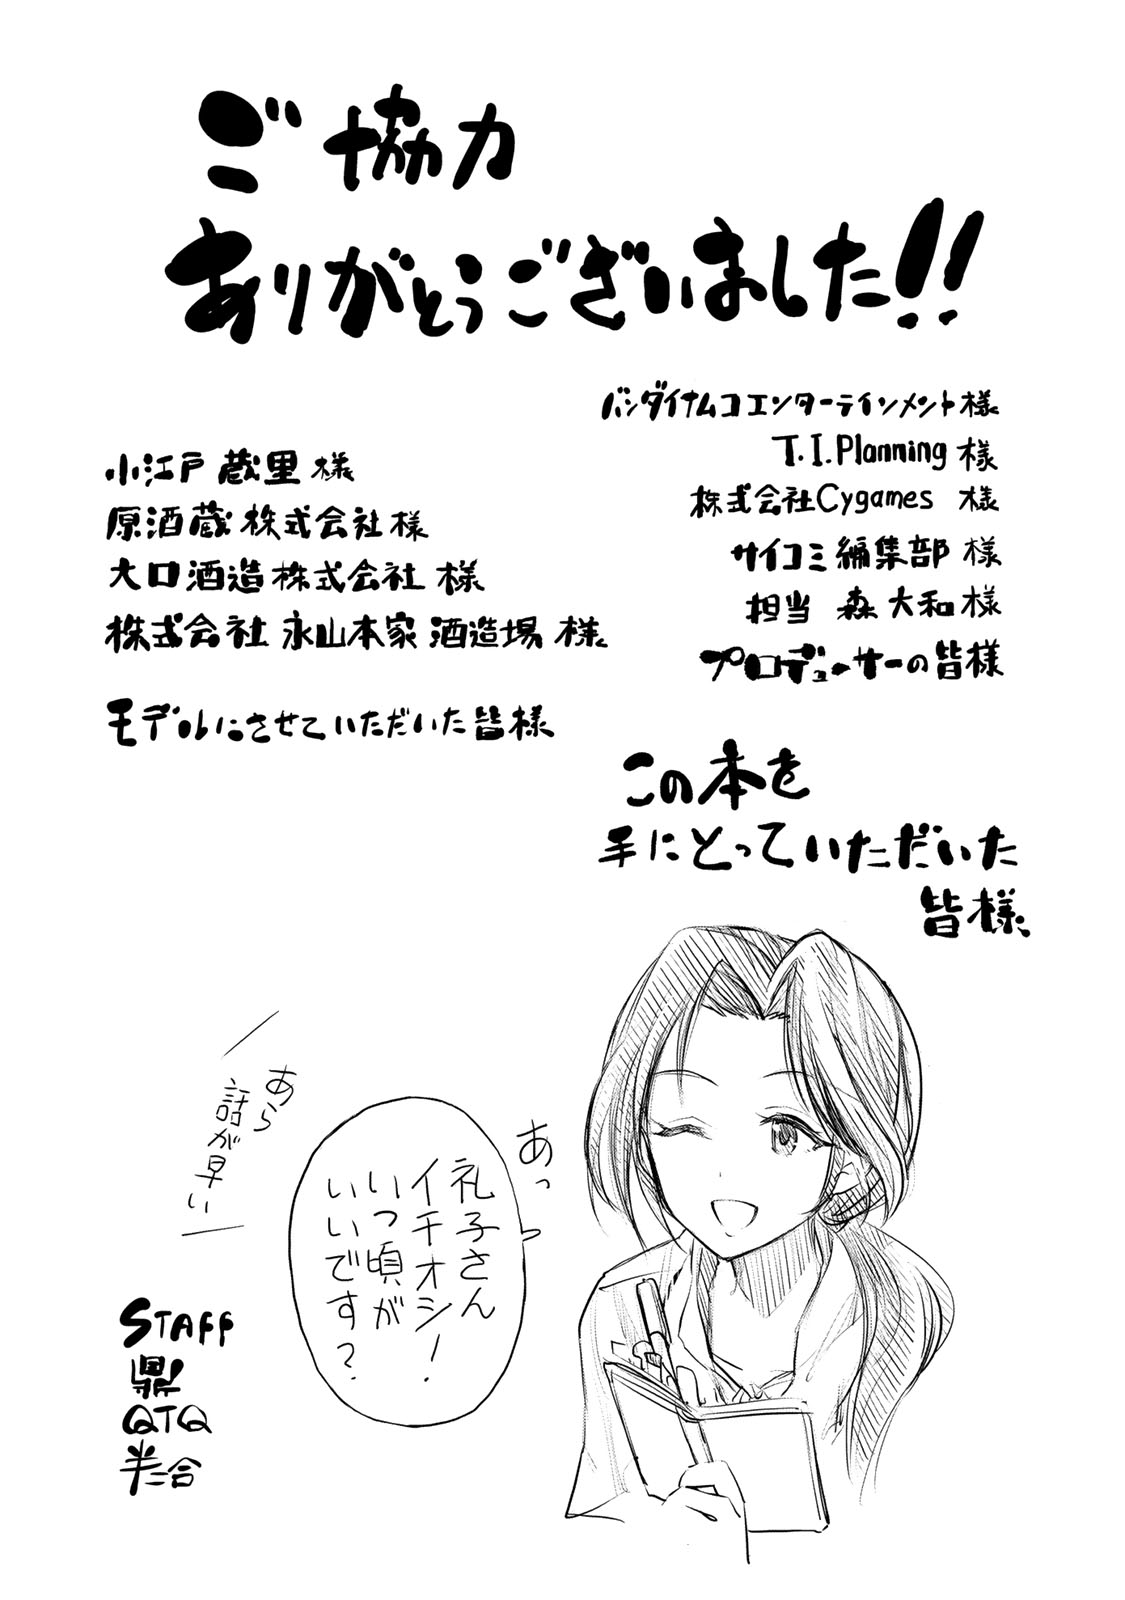 ご協力
ありがとうございました!!
バンダイナムコエンターテインメント様
T.I.Planning 様
株式会社Cygames 様
サイコミ編集部 様
担当 森 大和様
プロデューサーの皆様
小江戸 蔵里 様
原酒蔵 株式会社 様
大口酒造株式会社 様
株式会社 永山本家 酒造場 様
モデルにさせていただいた皆様
この本を
手にとっていただいた
皆様
あっ
礼子さん
イチオシ!
いつ頃が
いいです?
あら
話が早い
STAFF
鼎
QTQ
半二合